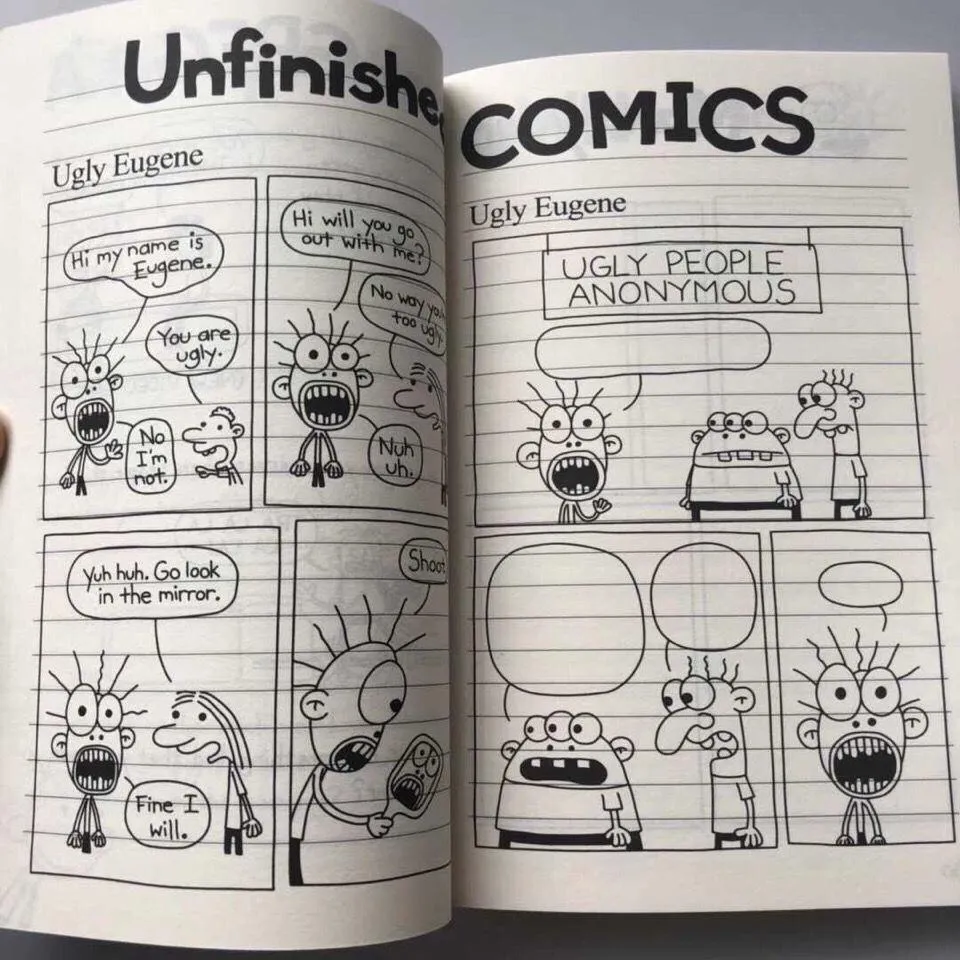 Unfinishe
COMICS
Ugly Eugene
Hi my name is
Eugene.
You are
ugly.
No
I'm
not.
Hi will you go
out with me?
No way
too ugly.
Nuh
uh.
Yuh huh. Go look
in the mirror.
Fine I
will.
Shoot
Ugly Eugene
UGLY PEOPLE
ANONYMOUS